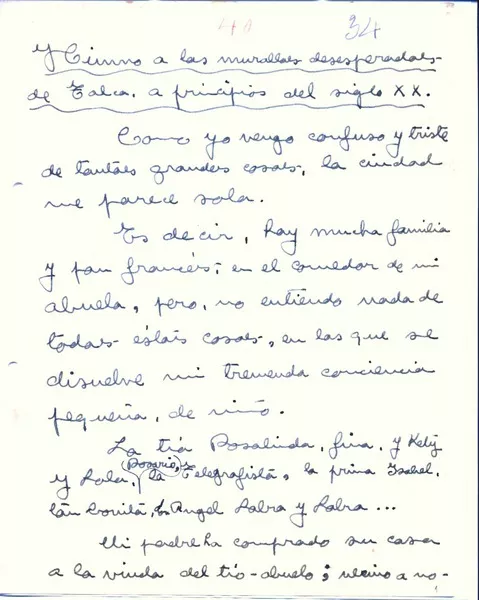 40 34
Y Himno a las murallas desesperadas
de Talca, a principios del siglo XX.
Como yo vengo confuso y triste
de tantas grandes cosas, la ciudad
me parece sola.
Es decir, hay mucha familia
y pan francés, en el comedor de mi
abuela, pero, no entiendo nada de
todas éstas cosas, en las que se
disuelve mi tremenda conciencia
pequeña, de niño.
La tía Rosalinda, fina, y Kety
y Lola, (Rosario,) la telegrafista, la prima Isabel,
tan bonita, Angel Labra y Labra...
Mi padre ha comprado su casa
a la viuda del tío-abuelo; vecino a no-